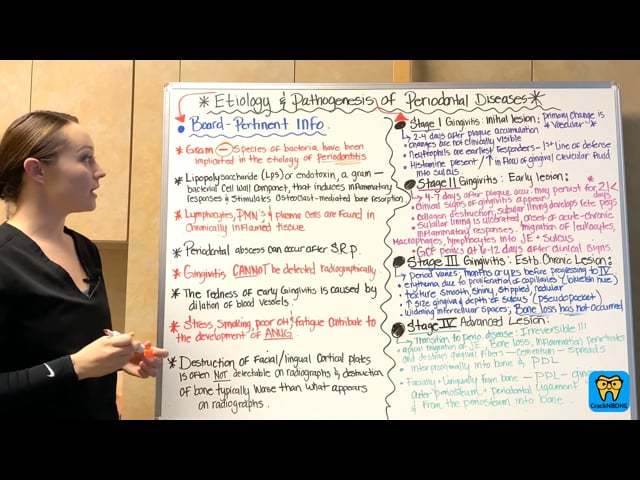 * Etiology & Pathogenesis of Periodontal Diseases *
Board-Pertinent Info.
* Gram ⊖ Species of bacteria have been
implicated in the etiology of periodontitis
* Lipopolysaccharide (LPS) or endotoxin, a gram –
bacterial cell wall component, that induces inflammatory
responses & stimulates osteoclast-mediated bone resorption
* Lymphocytes, PMN's & plasma cells are found in
Chronically inflamed tissue
* Periodontal abscess can occur after S.R.P.
* Gingivitis CANNOT be detected radiographically
* The redness of early Gingivitis is caused by
dilation of blood vessels.
* Stress, Smoking, poor OH & fatigue contribute to
the development of ANUG
* Destruction of Facial/lingual Cortical plates
is often NOT detectable on radiographs & destruction
of bone typically worse than what appears
on radiographs.
Stage I Gingivitis: Initial lesion: Primary Change is
* Vascular *
2-4 days after plaque accumulation
changes are not clinically visible
Neutrophils are earliest responders - 1st line of defense
Histamine present / ↑ in flow of gingival crevicular fluid
into sulcus.
Stage II Gingivitis: Early lesion *
4-7 days after plaque accu. may persist for 21<
days
Clinical signs of gingivitis appear
Collagen destruction, sulcular lining develops rete pegs
Sulcular lining is ulcerated, onset of acute-chronic
inflammatory responses. migration of leukocytes,
Macrophages, lymphocytes into JE + Sulcus
GCF peaks at 6-12 days after clinical signs.
Stage III Gingivitis: Estb. Chronic Lesion:
Period varies, months or yrs before progressing to IV
erythema due to proliferation of capillaries (blueish hue)
texture smooth, shiny, stippled, nodular
↑ size gingiva & depth of sulcus (pseudopocket)
widening intercellular spaces, Bone loss has not occurred
Stage IV Advanced Lesion:
Transition to perio. disease: Irreversible!!!
apical migration of JE. Bone loss, inflammation penetrates
and destroys gingival fibers - Cementum - Spreads
interproximally into bone & PDL
Facially & Lingually from bone - PDL -
outer periosteum + periodontal ligament
& from the periosteum into bone.
CrackNBDHE